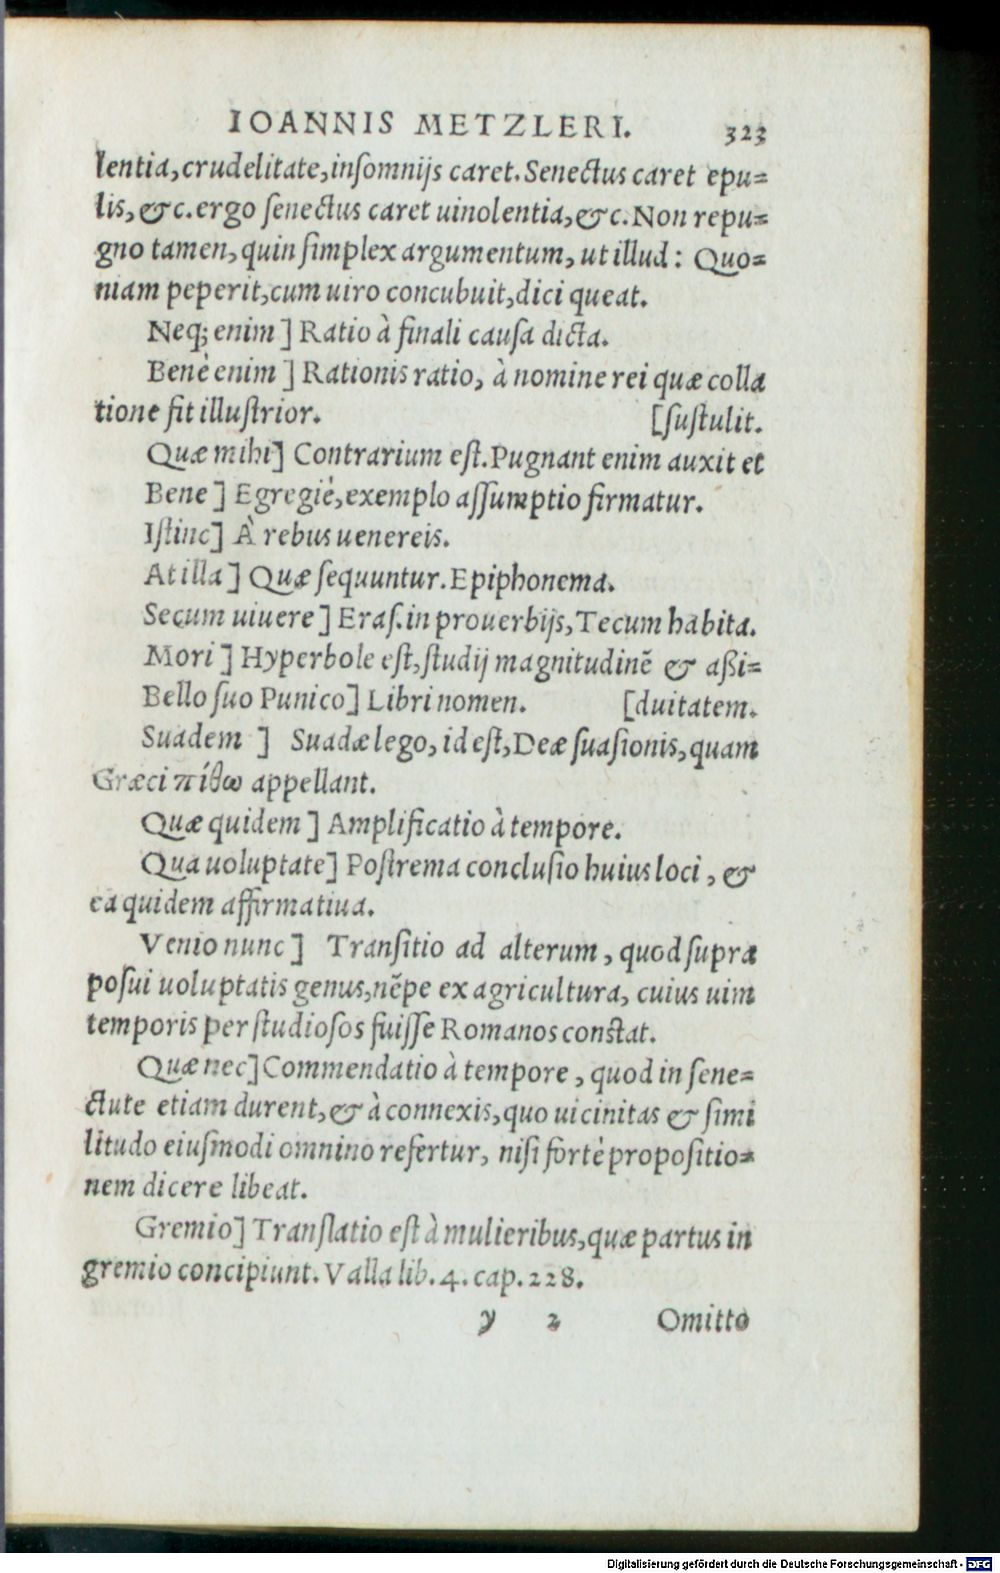 IOANNIS METZLERI. 323
lentia, crudelitate, inſomnijs caret. Senectus caret epu=
lis, &c. ergo ſenectus caret uinolentia, &c. Non repu=
gno tamen, quin ſimplex argumentum, ut illud: Quo=
niam peperit, cum uiro concubuit, dici queat.
Neq; enim ] Ratio à finali cauſa dicta.
Benè enim ] Rationis ratio, à nomine rei quæ colla
tione fit illuſtrior. [ſuſtulit.
Quæ mihi] Contrarium eſt. Pugnant enim auxit et
Bene ] Egregiè, exemplo aſſumptio firmatur.
Iſtinc] À rebus uenereis.
At illa ] Quæ ſequuntur. Epiphonema.
Secum uiuere ] Eraſ. in prouerbijs, Tecum habita.
Mori ] Hyperbole eſt, ſtudij magnitudinẽ & aßi=
Bello ſuo Punico] Libri nomen. [duitatem.
Suadem ] Suadæ lego, id eſt, Deæ ſuaſionis, quam
Græci πίθω appellant.
Quæ quidem ] Amplificatio à tempore.
Qua uoluptate] Poſtrema concluſio huius loci, &
ea quidem affirmatiua.
Venio nunc ] Tranſitio ad alterum, quod ſupra
poſui uoluptatis genus, nẽpe ex agricultura, cuius uim
temporis per ſtudioſos fuiſſe Romanos conſtat.
Quæ nec] Commendatio à tempore, quod in ſene=
ctute etiam durent, & à connexis, quo uicinitas & ſimi
litudo eiuſmodi omnino refertur, niſi fortè propoſitio=
nem dicere libeat.
Gremio] Tranſlatio eſt à mulieribus, quæ partus in
gremio concipiunt. Valla lib. 4. cap. 228.
y 2 Omitto
Digitalisierung gefördert durch die Deutsche Forschungsgemeinschaft - DFG